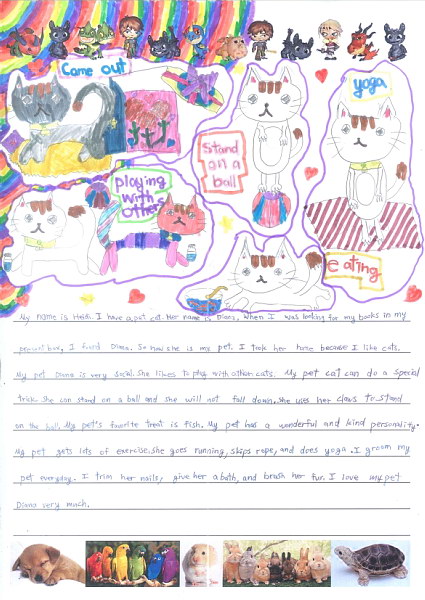 Came out
yoga
stand
on a
ball
playing
with
others
eating
My name is Heidi. I have a pet cat. Her name is Diana. When I was looking for my books in my
present box, I found Diana. So now she is my pet. I took her home because I like cats.
My pet Diana is very social. She likes to play with other cats. My pet cat can do a special
trick. She can stand on a ball and she will not fall down. She uses her claws to stand
on the ball. My pet's favorite treat is fish. My pet has a wonderful and kind personality.
My pet gets lots of exercise. She goes running, skips rope, and does yoga. I groom my
pet everyday. I trim her nails, give her a bath, and brush her fur. I love my pet
Diana very much.